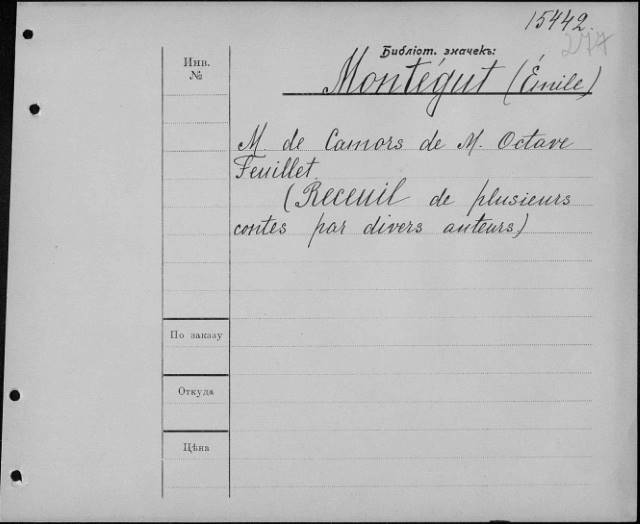 15442.
277
Библіот. значекъ:
Инв.
№
Montégut (Émile)
M. de Camors de M. Octave
Feuillet.
(Receuil de plusieurs
contes par divers auteurs)
По заказу
Откуда
Цѣна